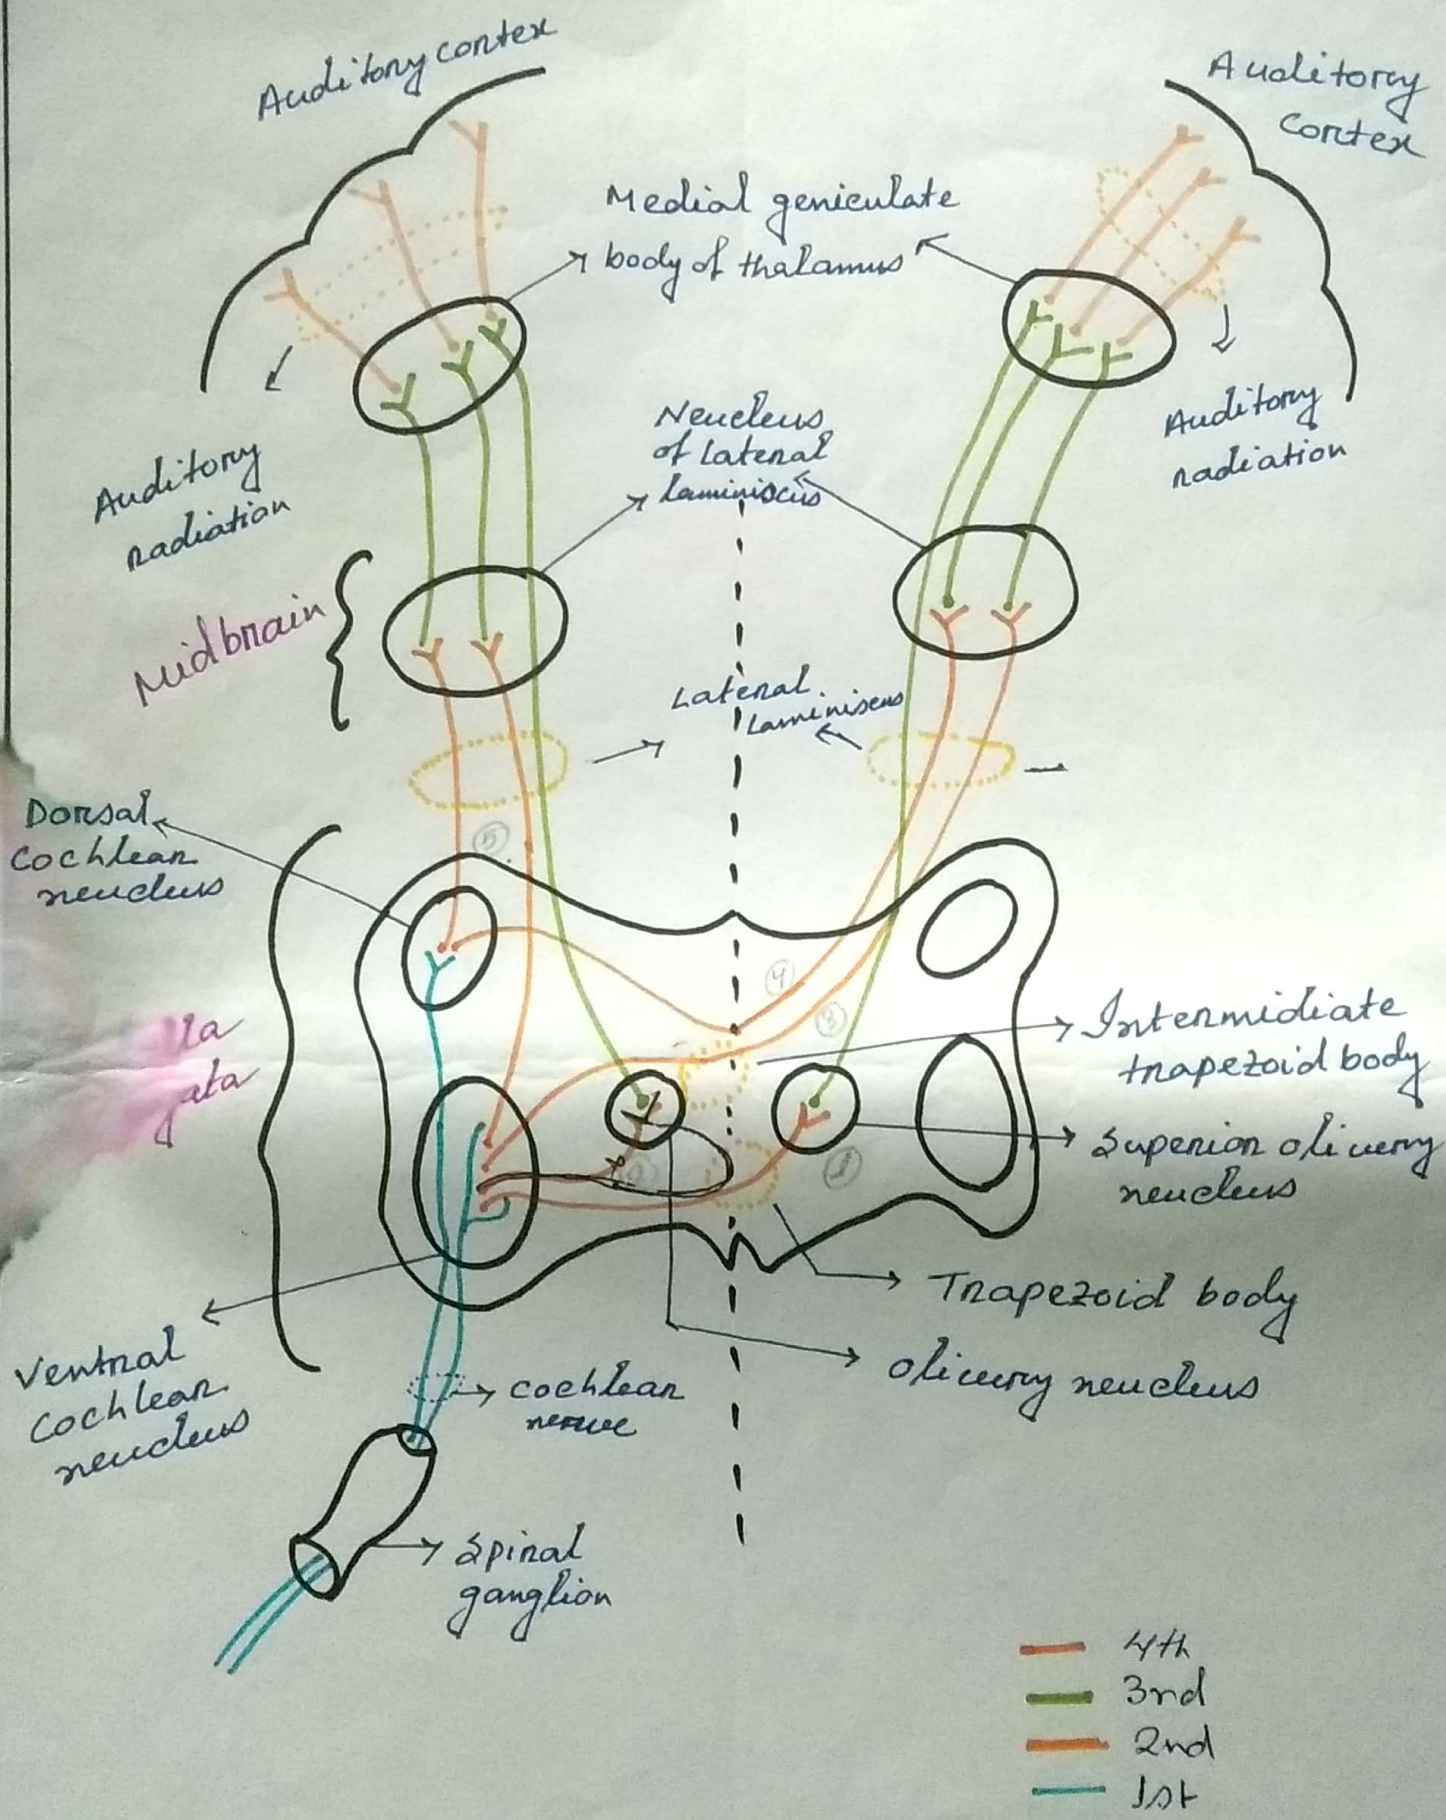 Auditory cortex
Auditory
cortex
Medial geniculate
body of thalamus
Neucleus
of Lateral
laminiscus
Auditory
radiation
Auditory
radiation
Midbrain
Lateral
Laminiscus
Dorsal
cochlean
neucleus
5
4
3
la
ata
Intermidiate
trapezoid body
Superior olivery
neucleus
Trapezoid body
olivery neucleus
Ventral
cochlean
neucleus
cochlean
nerve
Spinal
ganglion
4th
3rd
2nd
1st